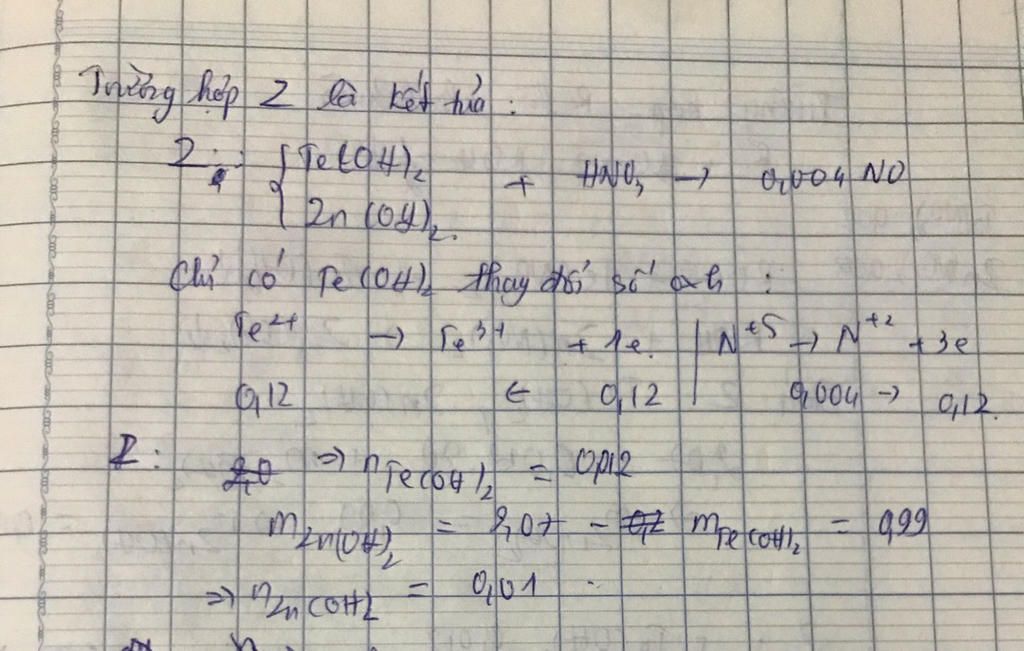 Trường hợp Z là kết tủa:
Z: { Fe(OH)₂ + HNO₃ → 0,004 NO
{ Zn(OH)₂.
Chỉ có Fe(OH)₂ thay đổi số oxh:
Fe²⁺ → Fe³⁺ + 1e. | N⁺⁵ → N⁺² + 3e
0,12 ← 0,12 | 0,004 → 0,12.
Z: ⇒ n Fe(OH)₂ = 0,012
m Zn(OH)₂ = 2,07 - m Fe(OH)₂ = 0,99
⇒ n Zn(OH)2 = 0,01